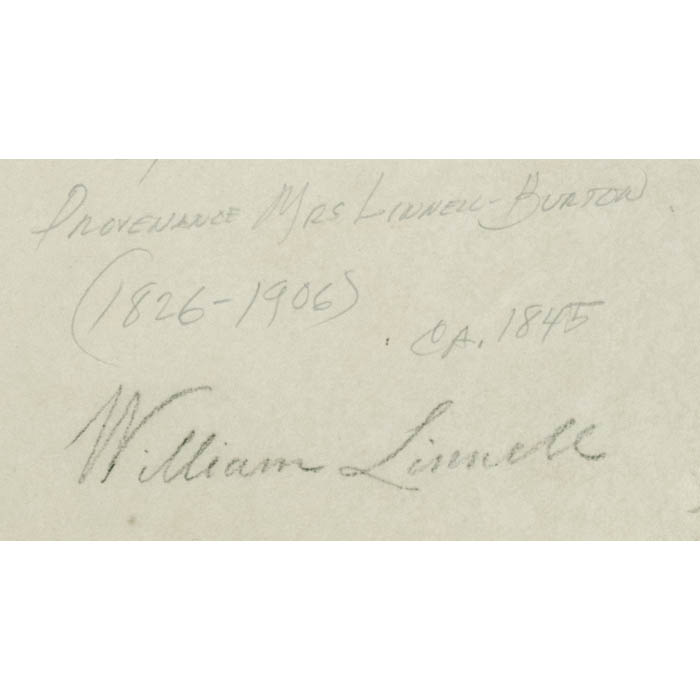 PROVENANCE MRS LINNELL-BURTON.
(1826-1906)
CA. 1845
William Linnell